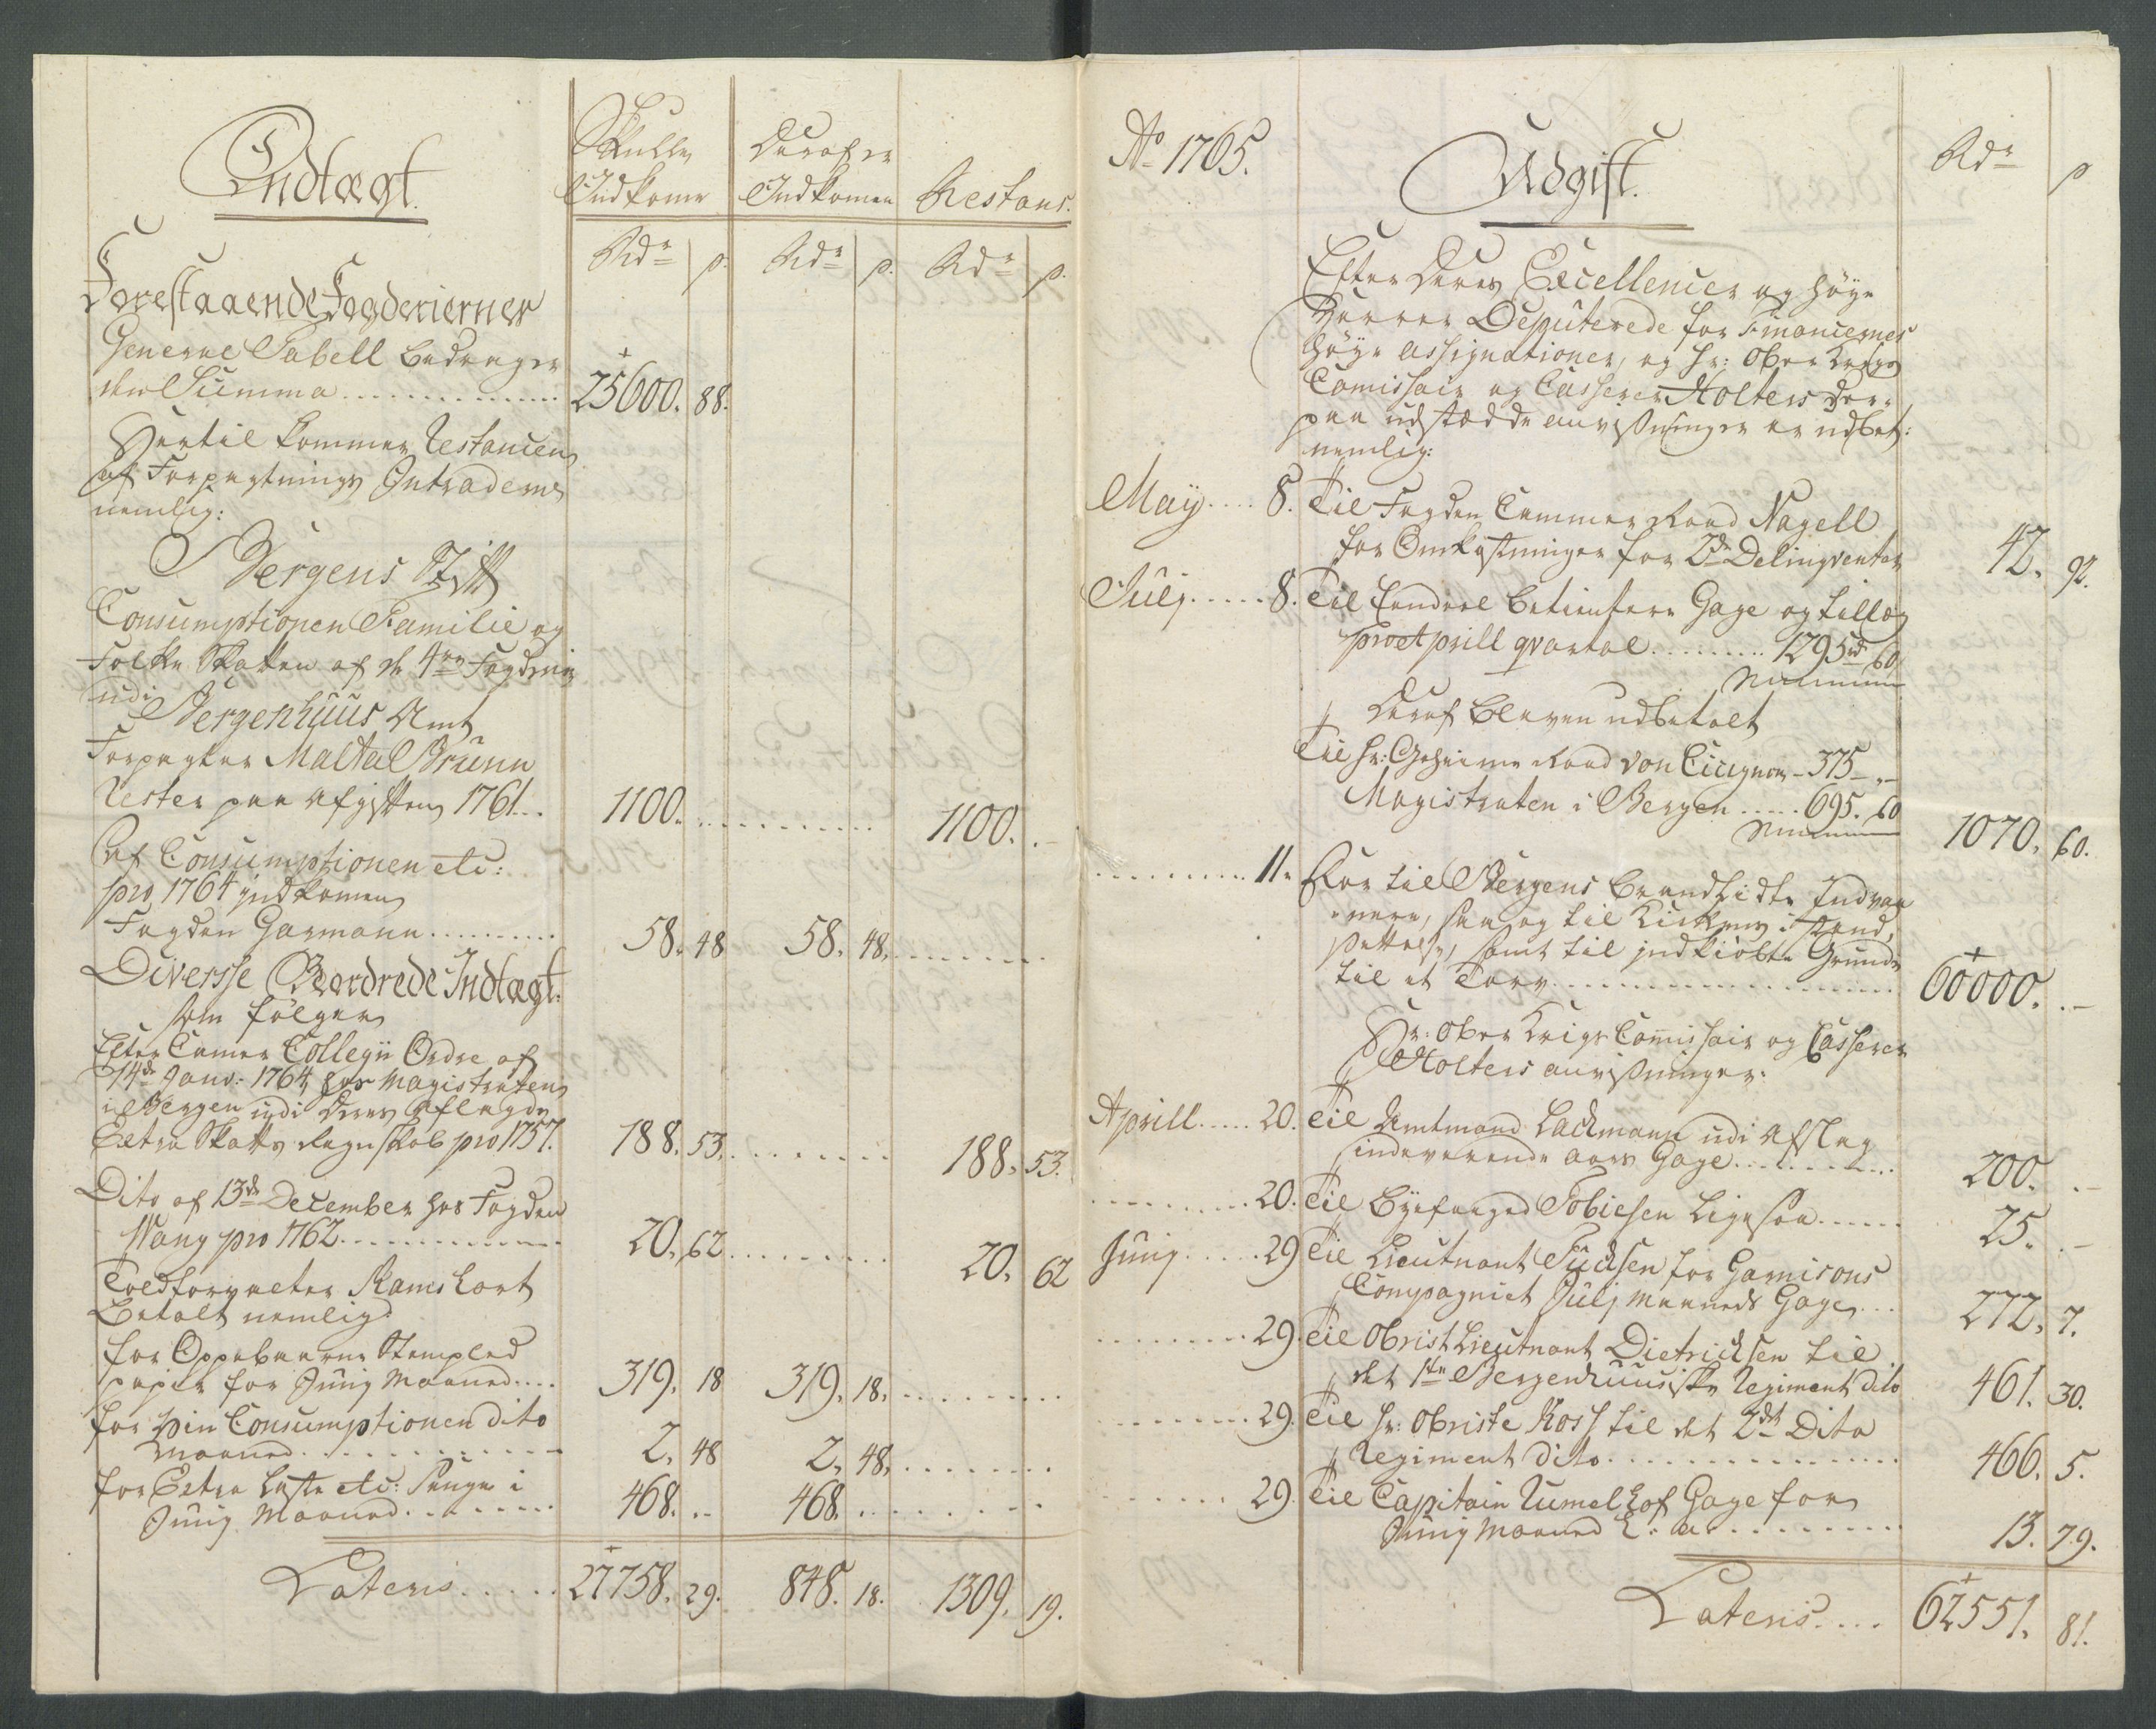 Indtægt.
Skulle Indkome
Deraf er Indkomen
Restans.
Rdr ß. Rdr ß. Rdr ß.
Forestaaende Fogderiernes
General Tabell bedrager
den Summa 25600. 88.
Hertil kommer Restancen
af Forpagtnings Intraderne
nemlig:
Bergens Stift
Consumptionen Familie og
Folke Skatten af de 4re Fogderier
udi Bergenhuus Amt
Forpagter Malta Brunn
Rester paa Afgiften 1761 1100. 1100. -
Af Consumptionen etc:
pro 1764 indkomen
Fogden Garmann 58. 48 58. 48.
Diversse Beordrede Indtægt.
som følger
Efter Camer Collegii Ordre af
14de Janv: 1764 hos Magistraten
i Bergen udi Deres Aflagde
Extra Skatts Regnskab pro 1757. 188. 53. 188. 53.
Dito af 13de December hos Fogden
Wang pro 1762 20. 62 20. 62
Toldforvalter Ramshart
Betalt nemlig:
for Oppebaarne Stempled
papir for Junij Maaned 319. 18 319. 18.
for Viin Consumptionen dito
Maaned 2. 48 2. 48.
for Extra Læste etc: Penge i
Junij Maaned 468. - 468.
Lateris 27758. 29. 848. 18. 1309. 19.
Ao 1765.
Udgift.
Rdr ß
Efter Deres Excellencer og høye
Herrer Deputerede for Financernes
høye Assignationer, og Hr: Ober Krigs
Comissair og Casserer Holters der-
paa udstædde anvisninger er udbet:
nemlig:
May 8. Til Fogden Cammer Raad Nagell
for Omkostninger for 2de Delinqventer 42. 92.
Julj 8. Til Civile betienteres Gage og tillæg
pro Aprill qvartal 1295rd 60
Deraf bleven udbetalt
Til Hr: Geheime Raad von Cicignon - 375 -
Magistraten i Bergen 695. 60
1070. 60.
11. For til Bergens brandlidte Indvaa-
nere, saa og til Kirkens i stand-
sættelse, samt til indkiøbte Grunde
til et Torv 60000. -
Hr: Ober Krigs Comissair og Casserer
Holters anvisninger.
Aprill 20. Til Amtmand Lachmann udi Afslag
indeværende aars Gage 200. -
20. Til Byefoged Tobiesen ligesaa 25. -
Junij 29 Til Lieutnant Tuchsen for Garnisons
Compagniet Julj Maaneds Gage 272. 7.
29. Til Obrist Lieutnant Dietrichsen til
det 1ste Bergenhuusiske Regiment dito 461. 30.
29. Til Hr: Obriste Koss til det 2det Dito
Regiment dito 466. 5.
29. Til Capitain Rumelhof Gage for
Junij Maaned 13. 79.
Lateris 62551. 81.